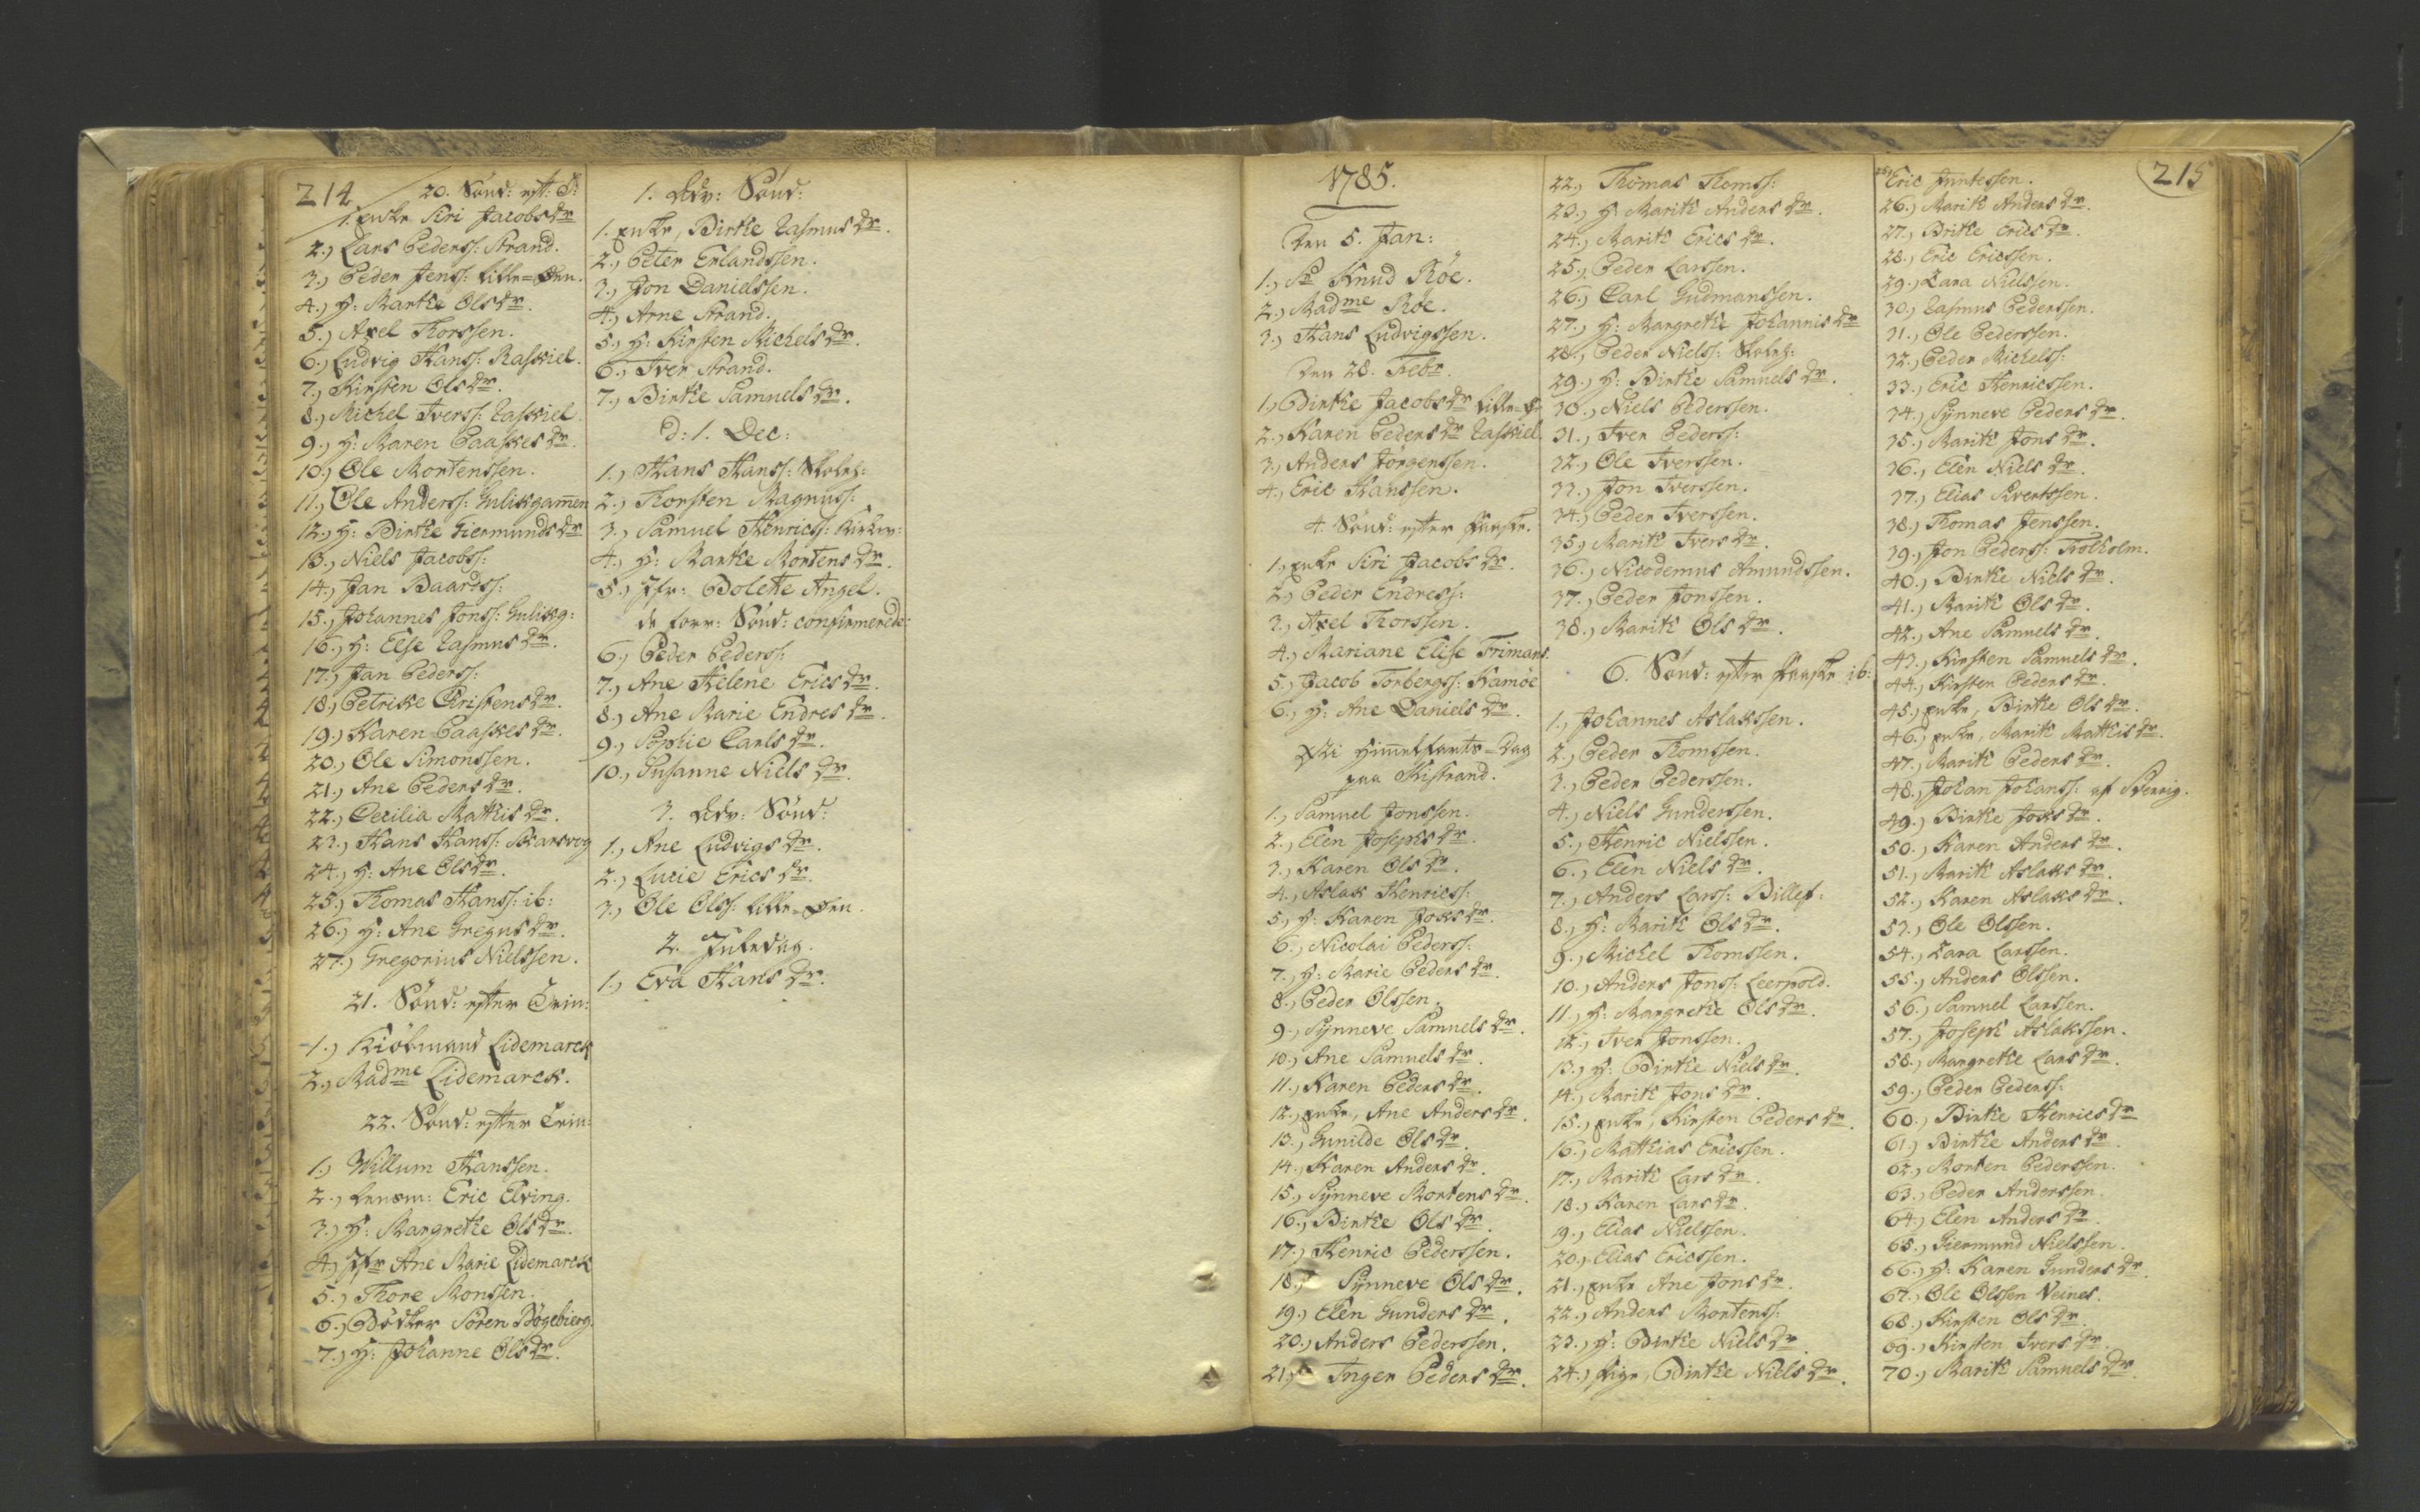 214
20. Sønd: eft: T:
1. enke Siri Jacobsdr
2., Lars Peders: Strand.
3., Peder Jens: Lille=Øen.
4., H: Marthe Olsdr.
5., Axel Thorssen.
6., Ludvig Hans: Raskiel.
7., Kirsten Olsdr.
8., Michel Ivers: Raskiel.
9., H: Maren Paaskesdr.
10., Ole Mortenssen.
11., Ole Anders: Gulisgamen
12., H: Birthe Giermundsdr
13., Niels Jacobs:
14., Jan Baards:
15., Johannes Jons: Gulisg:
16., H: Else Rasmusdr.
17., Jan Peders:
18., Petrike Christensdr.
19., Karen Paaskesdr.
20., Ole Simonssen.
21., Ane Pedersdr.
22., Cecilia Mathisdr.
23., Hans Hans: Skarsvog
24., H: Ane Olsdr.
25., Thomas Hans: ib:
26., H: Ane Gregusdr.
27., Gregorius Nielssen.
21. Sønd: efter Trin:
1., Kiøbmand Lidemarck
2., Madme Lidemarck.
22. Sønd: efter Trin:
1., Willum Hanssen.
2., Lensm: Eric Elving.
3., H: Margrethe Olsdr.
4., Jfr Ane Marie Lidemarck
5., Thore Monssen.
6., Bødker Søren Bøgebierg.
7., H: Johanne Olsdr.
1. Adv: Sønd:
1. enke, Birthe Rasmusdr.
2., Peter Erlandssen.
3., Jon Danielssen.
4., Arne Strand.
5., H: Kirsten Michelsdr.
6., Iver Strand.
7., Birthe Samuelsdr.
d: 1. Dec:
1., Hans Hans: Skoleh:
2., Thorsten Magnus:
3., Samuel Henrics:
4., H: Marthe Mortensdr.
5., Jfr: Bolette Angel.
de forr: Sønd: confirmerede:
6., Peder Peders:
7., Ane Helene Ericsdr.
8., Ane Marie Endresdr.
9., Sophie Carlsdr.
10., Susanne Nielsdr.
3. Adv: Sønd:
1., Ane Ludvigsdr.
2., Lucie Ericsdr.
3., Ole Ols: Lille=Øen.
2. Juledag.
1., Eva Hansdr.
1785.
Den 5. Jan:
1., Sr Knud Røe.
2., Madme Røe.
3., Hans Ludvigssen.
Den 28. Febr.
1., Birthe Jacobsdr Lille=Ø
2., Karen Pedersdr Raskiel.
3., Anders Jørgenssen.
4., Eric Hanssen.
4. Sønd: efter Paaske.
1., enke Siri Jacobsdr.
2., Peder Endres:
3., Axel Thorssen.
4., Mariane Elise Trimans.
5., Jacob Torbergs: Kamøe
6., H: Ane Danielsdr.
Xsti Himmelfarts=Dag
paa Kistrand.
1., Samuel Jonssen.
2., Elen Josephsdr.
3., Karen Olsdr.
4., Aslak Henrics:
5., H: Karen Joksdr.
6., Nicolai Peders:
7., H: Marie Pedersdr.
8., Peder Olssen.
9., Synneve Samuelsdr.
10., Ane Samuelsdr.
11., Karen Pedersdr.
12., enke, Ane Andersdr.
13., Gunilde Olsdr.
14., Karen Andersdr.
15., Synneve Mortensdr.
16., Birthe Olsdr.
17., Henric Pederssen.
18., Synneve Olsdr.
19., Elen Gundersdr.
20., Anders Pederssen.
21., Inger Pedersdr.
22., Thomas Thoms:
23., H: Marith Andersdr.
24., Marith Ericsdr.
25., Peder Larssen.
26., Carl Gudmanssen.
27., H: Margrethe Johannisdr
28., Peder Niels: Skoleh:
29., H: Birthe Samuelsdr.
30., Niels Pederssen.
31., Iver Peders:
32., Ole Iverssen.
33., Jon Iverssen.
34., Peder Iverssen.
35., Marith Iversdr.
36., Nicodemus Amundssen.
37., Peder Jonssen.
38., Marith Olsdr.
6. Sønd: efter Paaske ib:
1., Johannes Aslakssen.
2., Peder Thomssen.
3., Peder Pederssen.
4., Niels Gunderssen.
5., Henric Nielssen.
6., Elen Nielsdr.
7., Anders Lars: Billef:
8., H: Marith Olsdr.
9., Michel Thomssen.
10., Anders Jons: Leerpold.
11., H: Margrethe Olsdr.
12., Iver Jonssen.
13., H: Birthe Nielsdr.
14., Marith Jonsdr.
15., enke, Kirsten Pedersdr.
16., Mathias Ericssen.
17., Marith Larsdr.
18., Karen Larsdr.
19., Elias Nielssen.
20., Elias Ericssen.
21., enke Ane Jonsdr.
22., Anders Mortens:
23., H: Birthe Nielsdr.
24., Pige, Birthe Nielsdr.
215
25., Eric Juntessen.
26., Marith Andersdr.
27., Brithe Ericsdr.
28., Eric Ericssen.
29., Lara Nielssen.
30., Rasmus Pederssen.
31., Ole Pederssen.
32., Peder Michels:
33., Eric Henricssen.
34., Synneve Pedersdr.
35., Marith Jonsdr.
36., Elen Nielsdr.
37., Elias Sivertssen.
38., Thomas Jenssen.
39., Jon Peders: Trolholm.
40., Birthe Nielsdr.
41., Marith Olsdr.
42., Ane Samuelsdr.
43., Kirsten Samuelsdr.
44., Kirsten Pedersdr.
45., enke, Birthe Olsdr.
46., enke, Marith Mathisdr.
47., Marith Pedersdr.
48., Johan Johans: af Sverig.
49., Birthe Joksdr.
50., Karen Andersdr.
51., Marith Aslaksdr.
52., Karen Aslaksdr.
53., Ole Olssen.
54., Lara Larssen.
55., Anders Olssen.
56., Samuel Larssen.
57., Joseph Aslakssen.
58., Margrethe Larsdr.
59., Peder Peders:
60., Birthe Henricsdr
61., Birthe Andersdr.
62., Morten Pederssen.
63., Peder Anderssen.
64., Elen Andersdr.
65., Giermund Nielssen.
66., H: Karen Gundersdr.
67., Ole Olssen Veines.
68., Kirsten Olsdr.
69., Kirsten Iversdr.
70., Marith Samuelsdr.